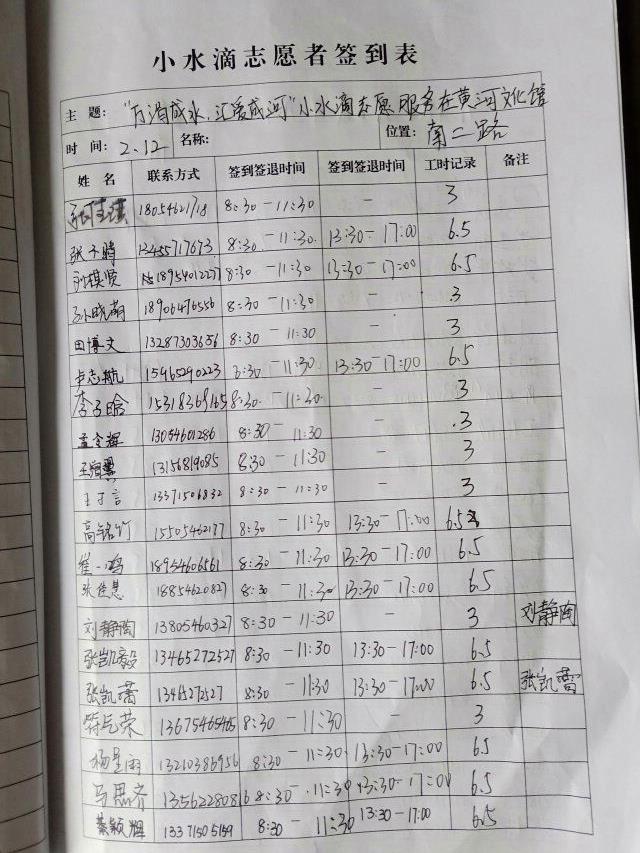 小水滴志愿者签到表
主 题： “万涓成水，汇爱成河”小水滴志愿服务在黄河文化馆
时 间： 2.12 名称： 位置： 南二路
姓 名 联系方式 签到签退时间 签到签退时间 工时记录 备注
18054621718 8:30-11:30 - 3
张子腾 13455717673 8:30-11:30. 13:30-17:00 6.5
刘棋贤 18954012277 8:30-11:30 13:30-17:00 6.5
孙晓萌 18906476556 8:30-11:30 - 3
田博文 13287303656 8:30-11:30 - 3
卢志航 15965290223 8:30-11:30 13:30-17:00 6.5
李子晗 15318369145 8:30-11:30 - 3
孟令辉 13054601286 8:30-11:30 - 3
13156819085 8:30-11:30 - 3
王子言 13371506832 8:30-11:30 - 3
高铭竹 15505462177 8:30-11:30 13:30-17:00 6.5
崔一鸣 18954606561 8:30-11:30 13:30-17:00 6.5
张佳慧 18854620827 8:30-11:30 13:30-17:00 6.5
刘静陶 13805460327 8:30-11:30 - 3 刘静陶
张凯毅 13465272527 8:30-11:30 13:30-17:00 6.5
张凯蕾 13465272527 8:30-11:30 13:30-17:00 6.5 张凯蕾
13675465465 8:30-11:30 - 3
杨星雨 13210386956 8:30-11:30 13:30-17:00 6.5
马思齐 13562280816 8:30-11:30 13:30-17:00 6.5
綦颖辉 13371505159 8:30-11:30 13:30-17:00 6.5